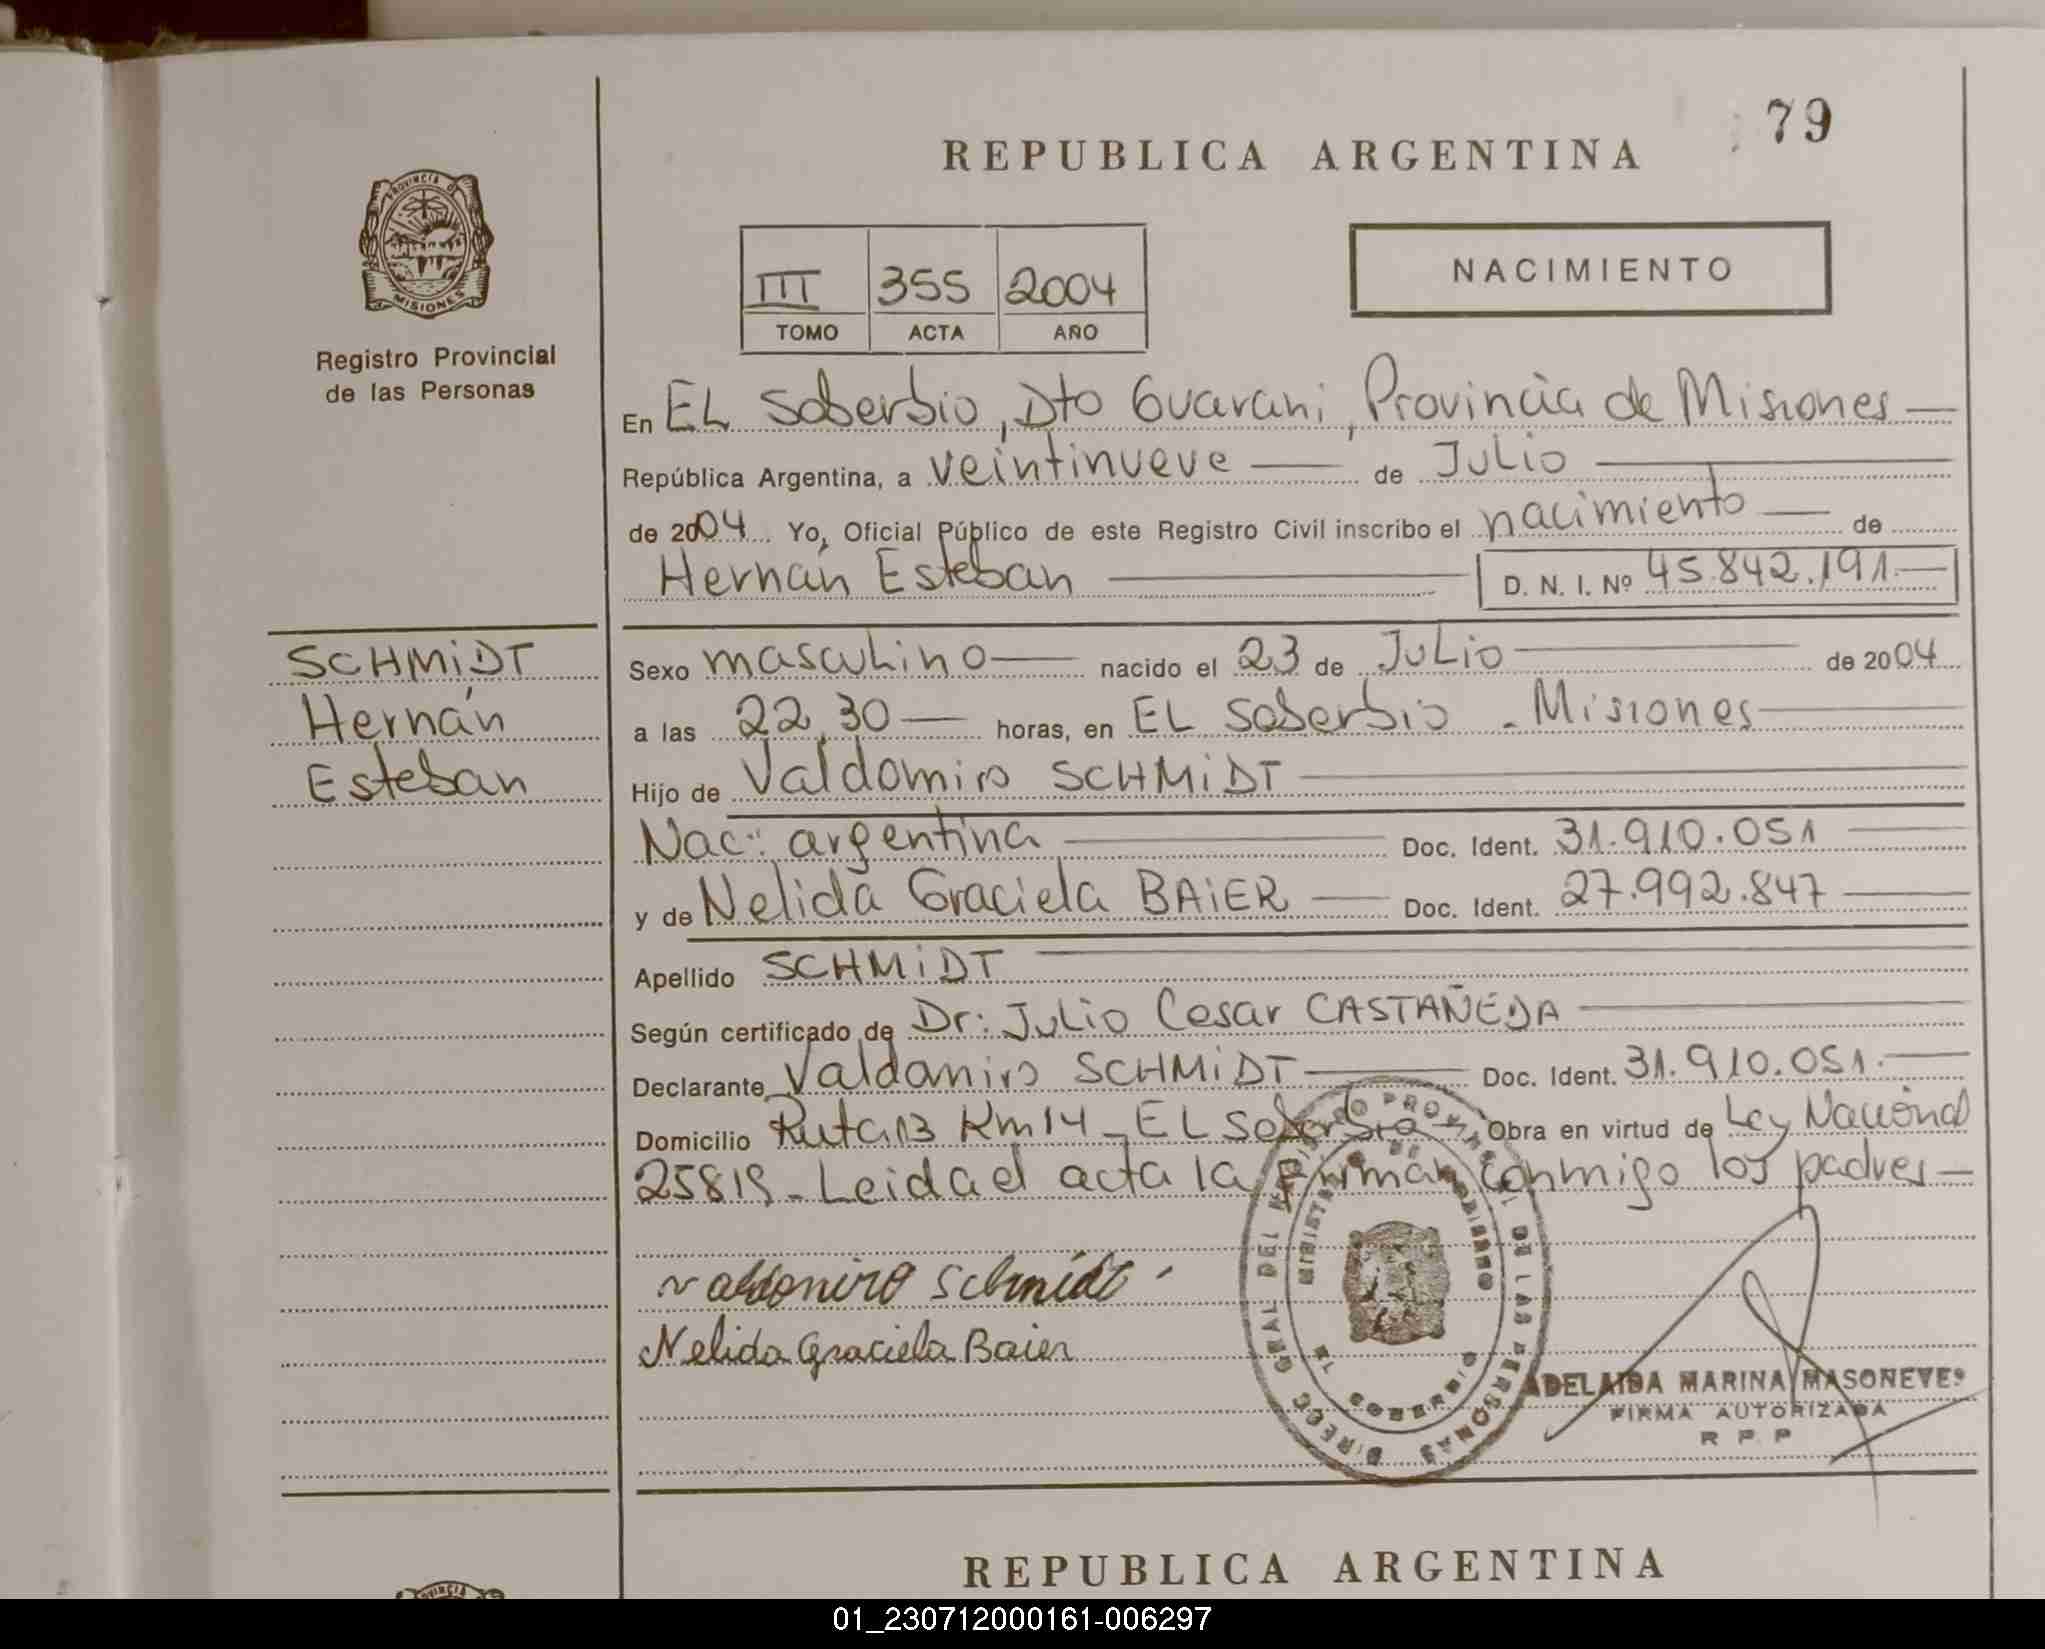 79
REPUBLICA ARGENTINA
PROVINCIA D
MISIONES
Registro Provincial
de las Personas
III 355 2004
TOMO ACTA AÑO
NACIMIENTO
En EL Soberbio, Dto Guarani, Provincia de Misiones
República Argentina, a veintinueve de Julio
de 2004 Yo, Oficial Público de este Registro Civil inscribo el nacimiento de
Hernán Esteban D. N. I. Nº 45.842.191
SCHMiDT
Hernán
Esteban
Sexo masculino nacido el 23 de Julio de 2004
a las 22,30 horas, en EL Soberbio - Misiones
Hijo de Valdomiro SCHMiDT
Nac: argentina Doc. Ident. 31.910.051
y de Nelida Graciela BAiER Doc. Ident. 27.992.847
Apellido SCHMiDT
Según certificado de Dr: Julio Cesar CASTAÑEDA
Declarante Valdomiro SCHMiDT Doc. Ident. 31.910.051.
Domicilio Ruta 13 Km 14 - EL Soberbio Obra en virtud de Ley Nacional
25819 - Leida el acta la firman conmigo los padres
Valdomiro Schmidt
Nelida Graciela Baier
DIRECC GRAL DEL REGISTRO PROVINCIAL DE LAS PERSONAS
MINISTERIO DE GOBIERNO
ADELAIDA MARINA MASONEVES
FIRMA AUTORIZADA
R P P
REPUBLICA ARGENTINA
01_230712000161-006297